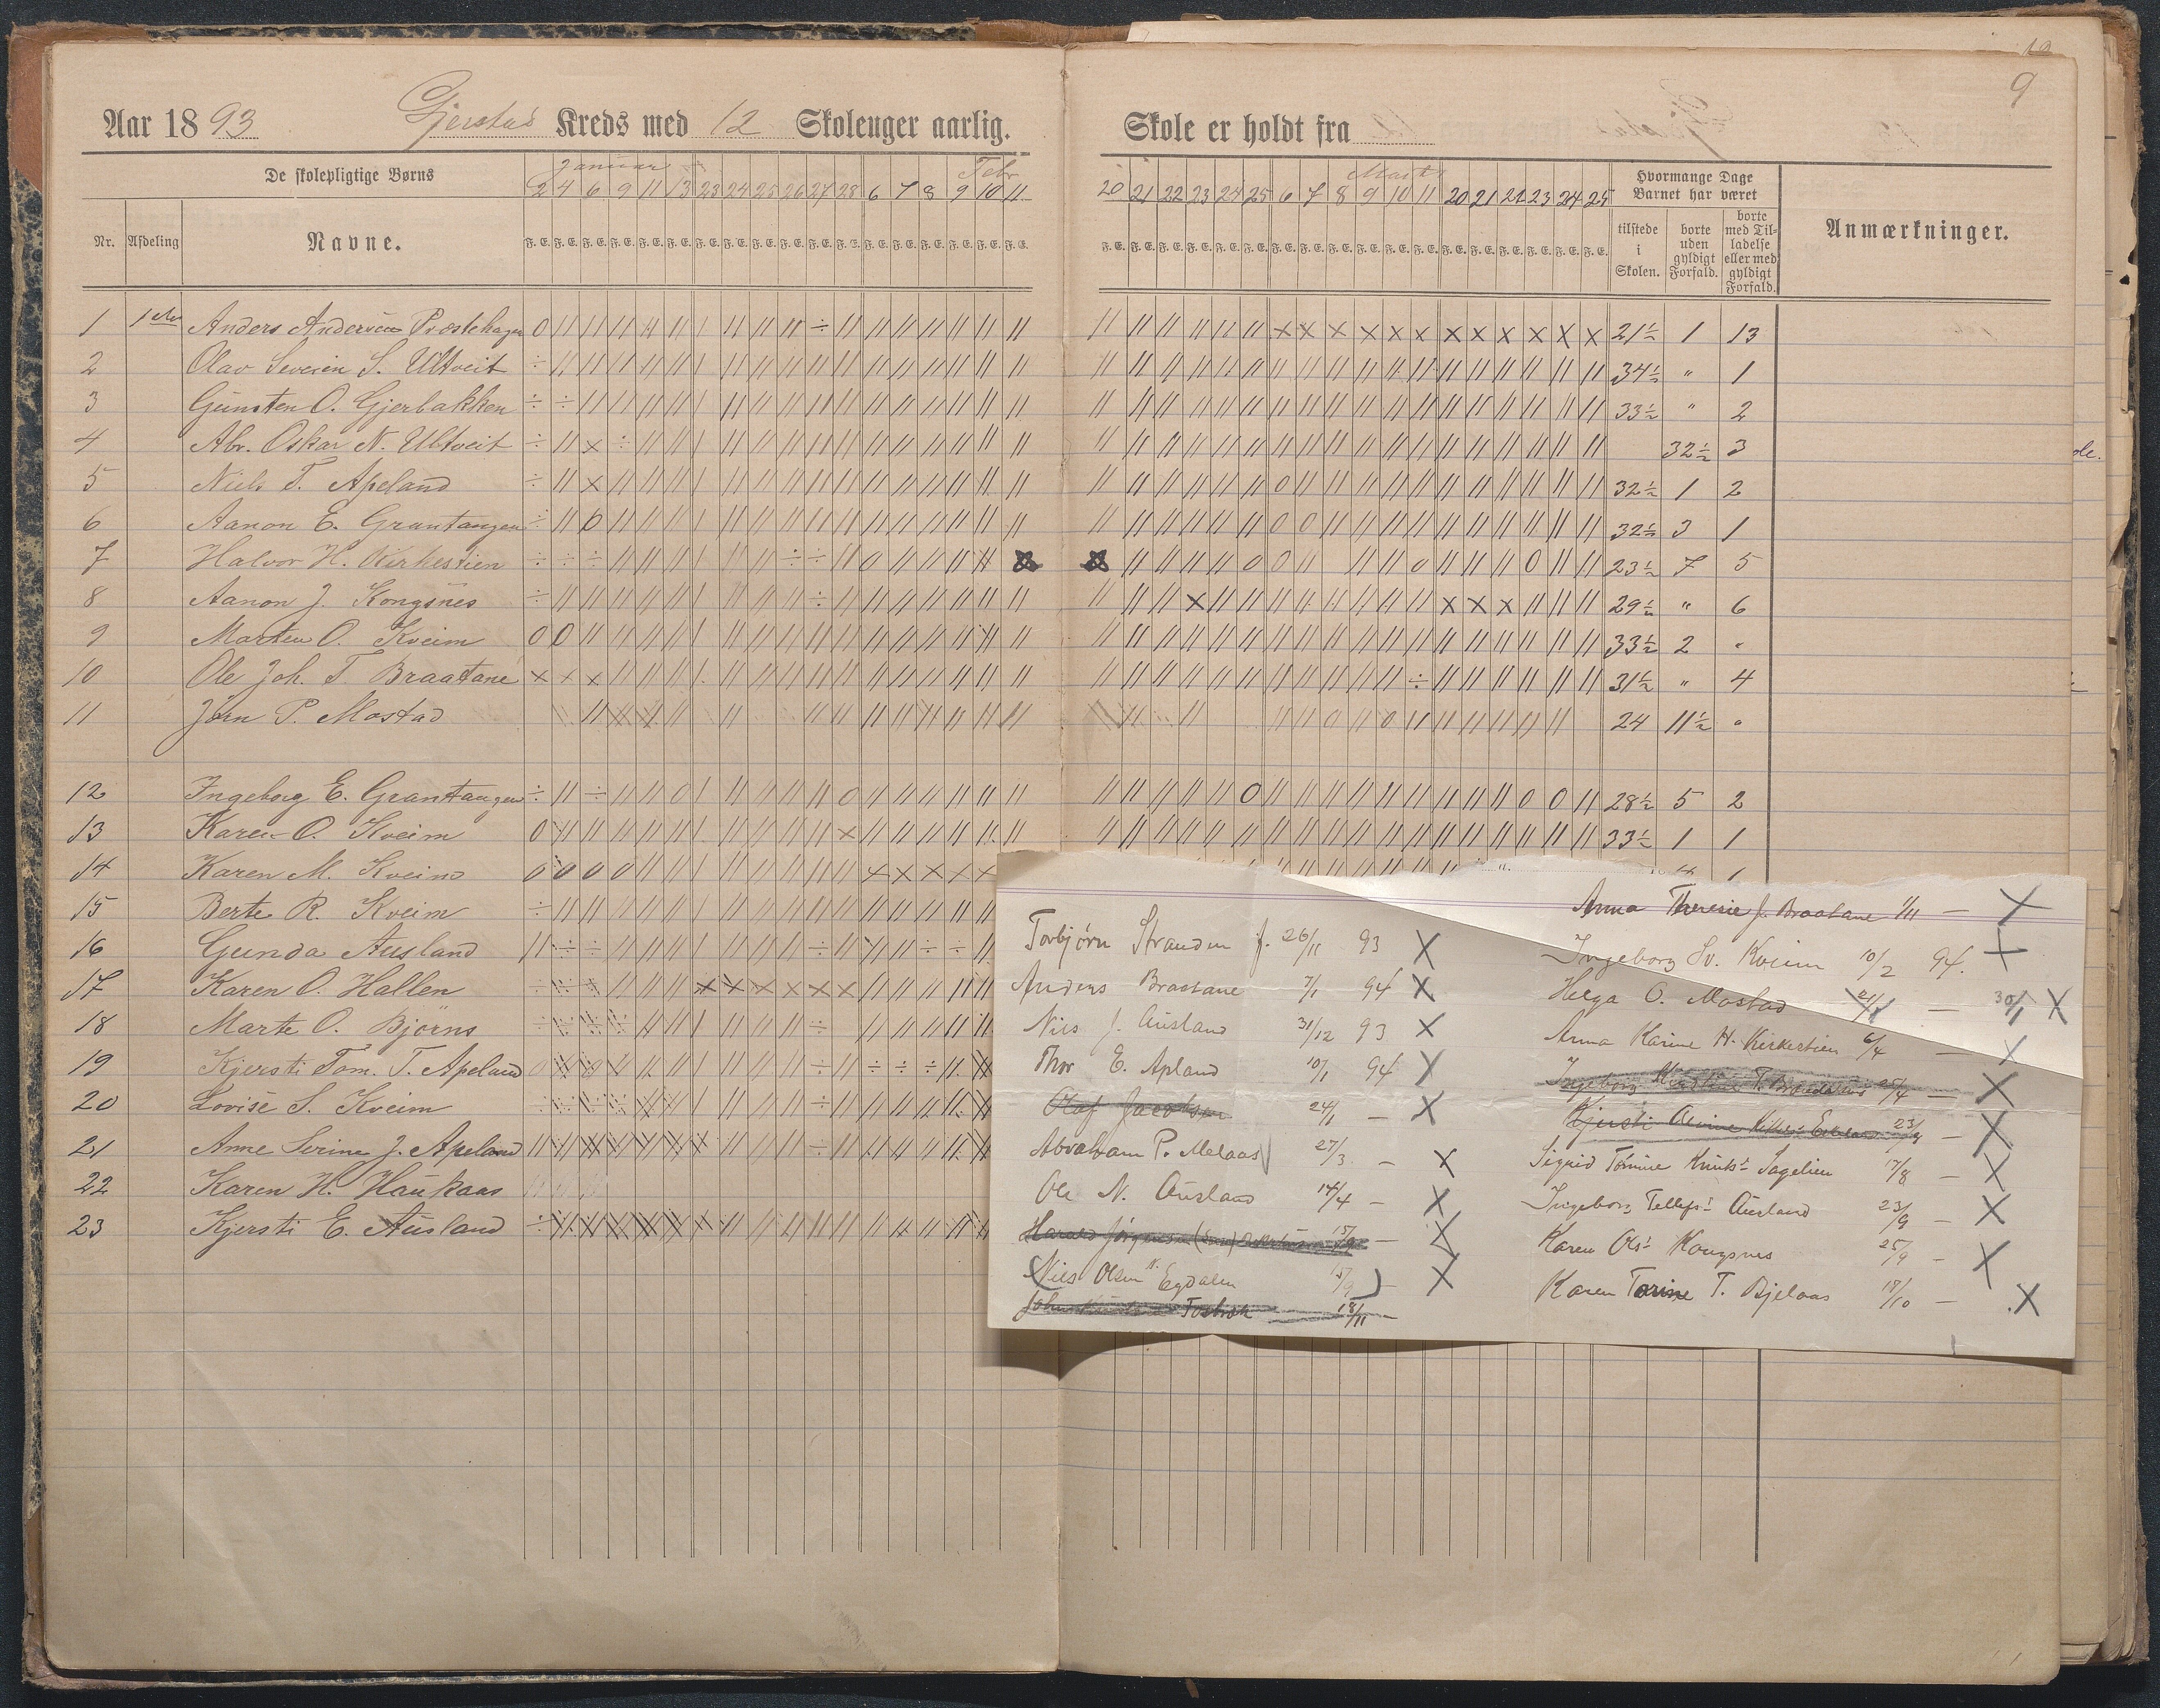 9
Aar 1893 Gjerstad Kreds med 12 Skoleuger aarlig. Skole er holdt fra
De skolepligtige Børns Januar Febr Marts Hvormange Dage Barnet har været
2 4 6 9 11 13 23 24 25 26 27 28 6 7 8 9 10 11 20 21 22 23 24 25 6 7 8 9 10 11 20 21 22 23 24 25
Nr. Afdeling Navne. tilstede i Skolen. borte uden gyldigt Forfald. borte med Tilladelse eller med gyldigt Forfald. Anmærkninger.
1 1ste Anders Andersen Præstehagen 21½ 1 13
2 Olav Severin S. Ulltveit 34½ " 1
3 Gunsten O. Gjerbakken 33½ " 2
4 Abr. Oskar N. Ulltveit 32½ 3
5 Niels T. Apeland 32½ 1 2
6 Aanon E. Grantangen 32½ 3 1
7 Halvor H. Kirkestien 23½ 7 5
8 Aanon J. Kongsnes 29½ " 6
9 Martin O. Kveim 33½ 2 "
10 Ole Joh. T. Braatane 31½ " 4
11 Jørn P. Mostad 24 11½ "
12 Ingeborg E. Grantangen 28½ 5 2
13 Karen O. Kveim 33½ 1 1
14 Karen M. Kveim
15 Berte R. Kveim
16 Gunda Ausland
17 Karen O. Hallen
18 Marte O. Bjørns
19 Kjersti Tom. T. Apeland
20 Lovise S. Kveim
21 Anne Serine J. Apeland
22 Karen H. Haukaas
23 Kjersti E. Ausland
Torbjørn Stranden f. 26/11 93 X
Anders Braatane 7/1 94 X
Nils J. Ausland 31/12 93 X
Thor E. Apland 10/1 94 X
Olaf Jacobsen 24/1 – X
Abraham P. Melaas 27/3 – X
Ole N. Ausland 14/4 – X
Harald Jørgensen 15/9 – X
(Nils Olsen Egdalen 15/9) – X
John Tosbrok 18/11 –
Anna Therese J. Braatane 1/11 – X
Ingeborg Sv. Kveim 10/2 94. X
Helga O. Mostad 21/1 – 30/1 X
Anna Karine H. Kirkestien 6/4 – X
Ingeborg T. Braatane 25/4 – X
Kjersti Olivine 23/9 – X
Sigrid Tomine Knutsd. Sagelien 17/8 – X
Ingeborg Tellefsd. Ausland 23/9 – X
Karen Olsd. Kongsnes 25/9 – X
Karen Torine T. Bjelaas 18/10 – X